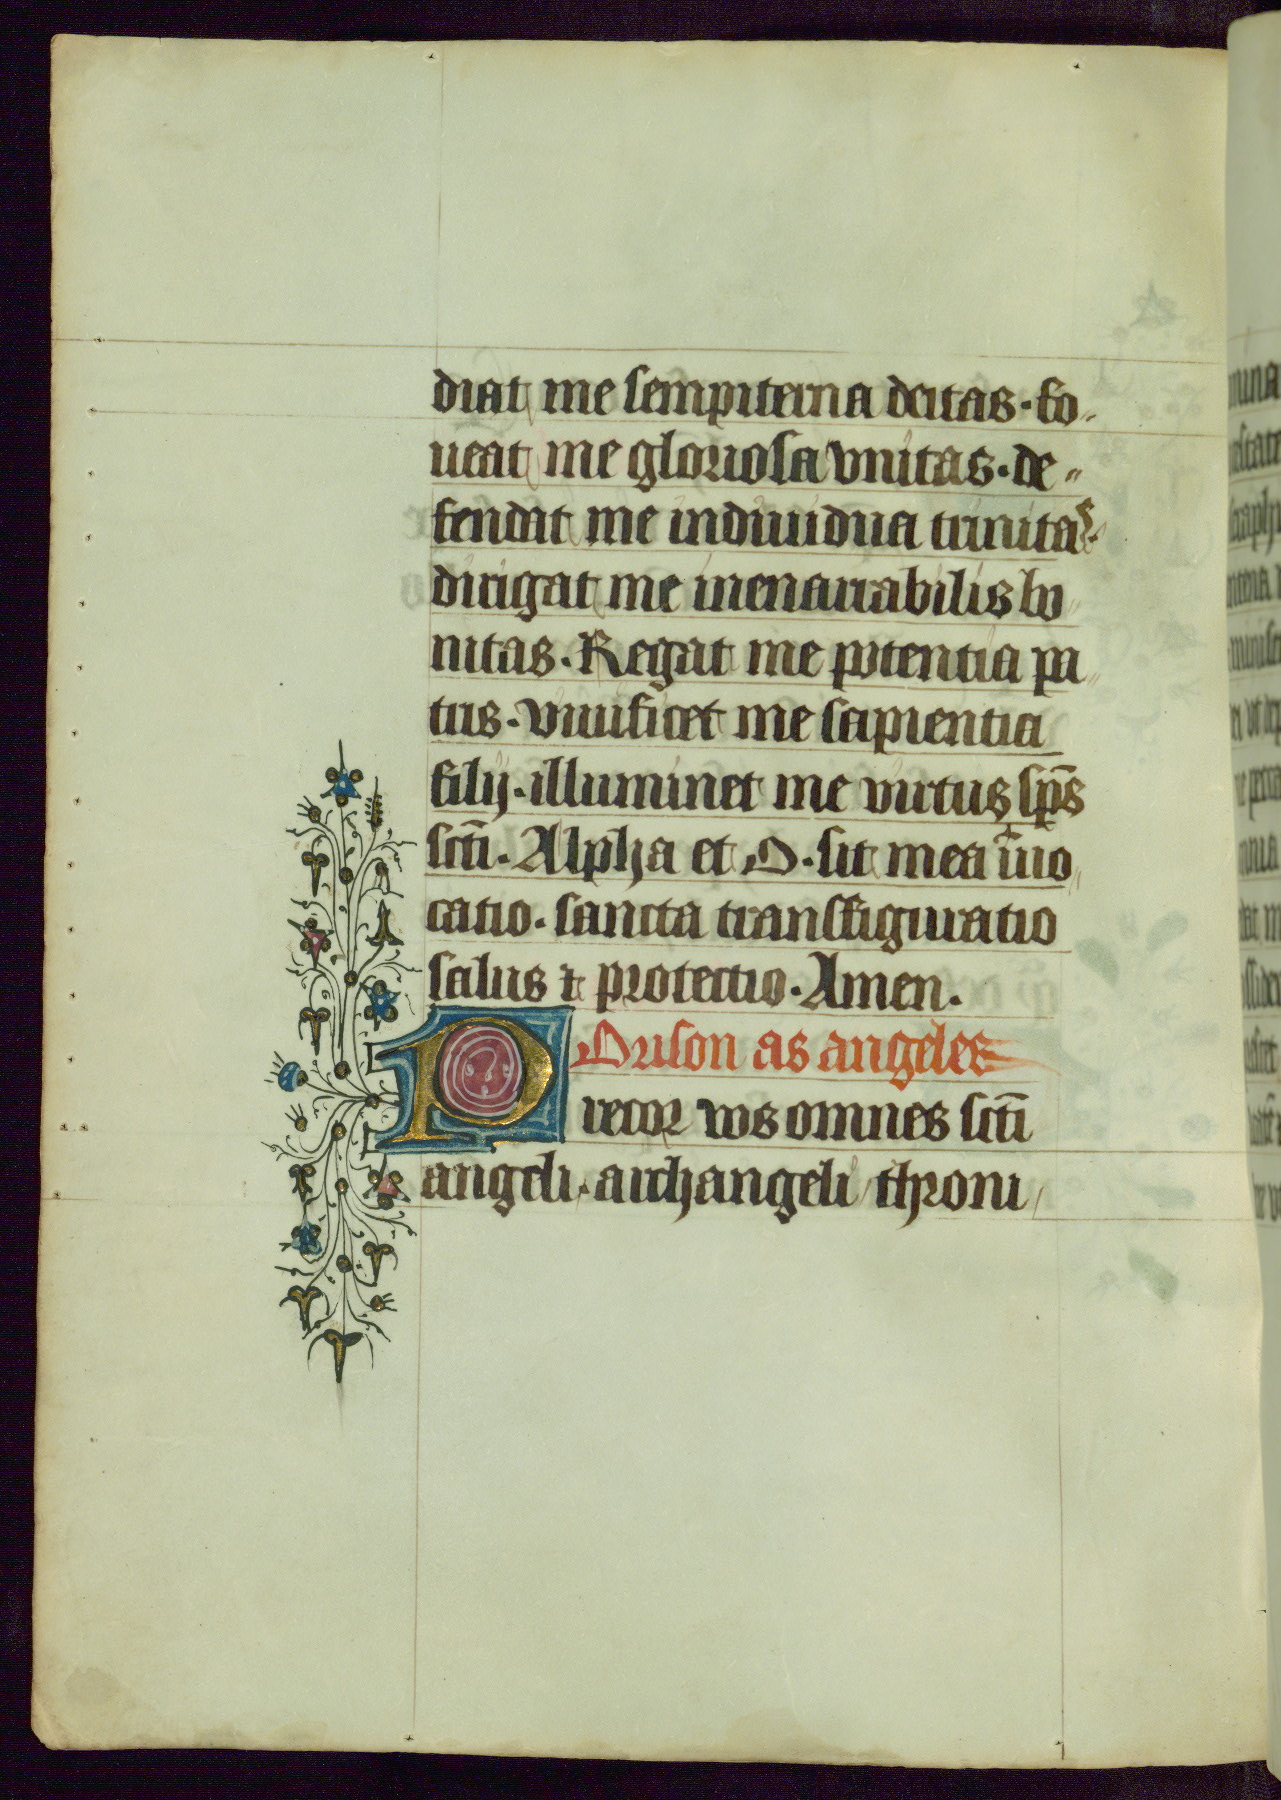 diat me sempiterna deitas. fo-
ueat me gloriosa vnitas. de-
fendat me indiuidua trinitas.
dirigat me inenarrabilis bo-
nitas. Regat me potentia pa-
tris. viuificet me sapientia
filij. illuminet me virtus sp̄s
sct̄i. Alpha et O. sit mea īuo-
catio. sancta transffiguratio
salus ⁊ protectio. Amen.
Orison as angeles
Precor vos omnes sct̄i
angeli. archangeli throni